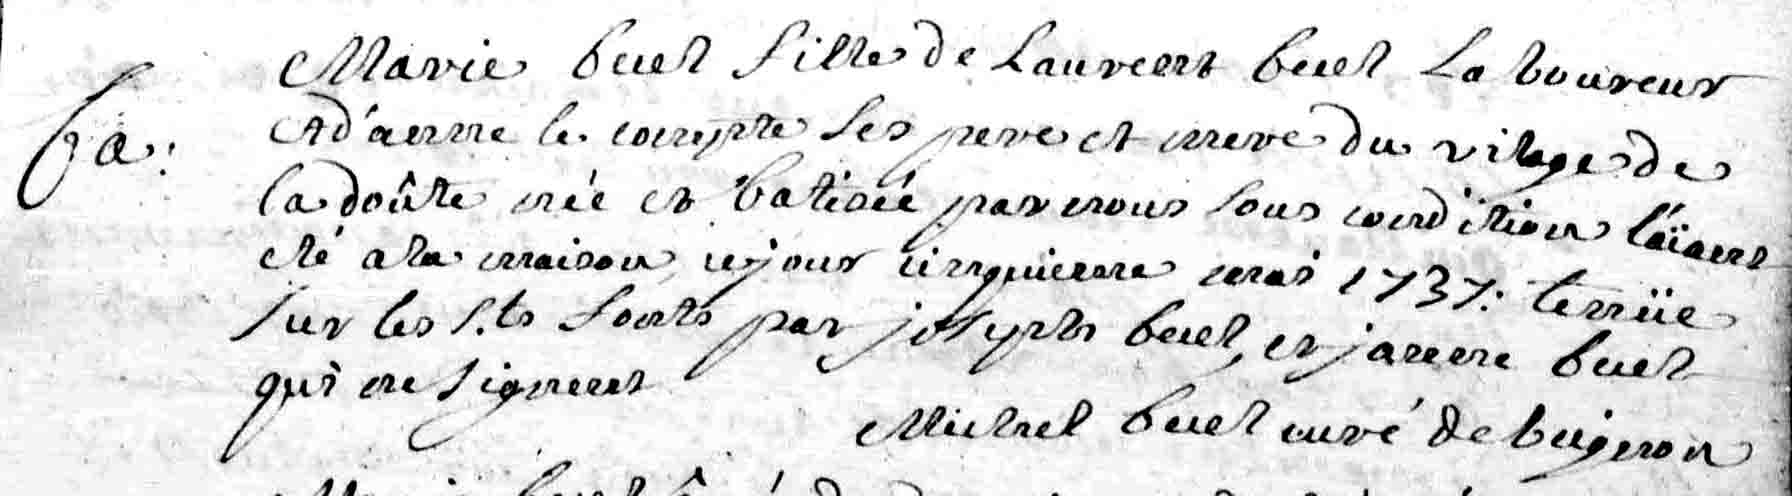 Marie buet fille de Laurent buet Laboureur
Ba:
et d'anne le compte ses pere et mere du vilage de
la doûte née et batisée par nous sous condition l'aïant
eté a la maison, ce jour cinquieme mai 1737: tenüe
sur les s.ts fonts par joseph buet, et janne buet
qui ne signent
Michel buet curé de bugeron